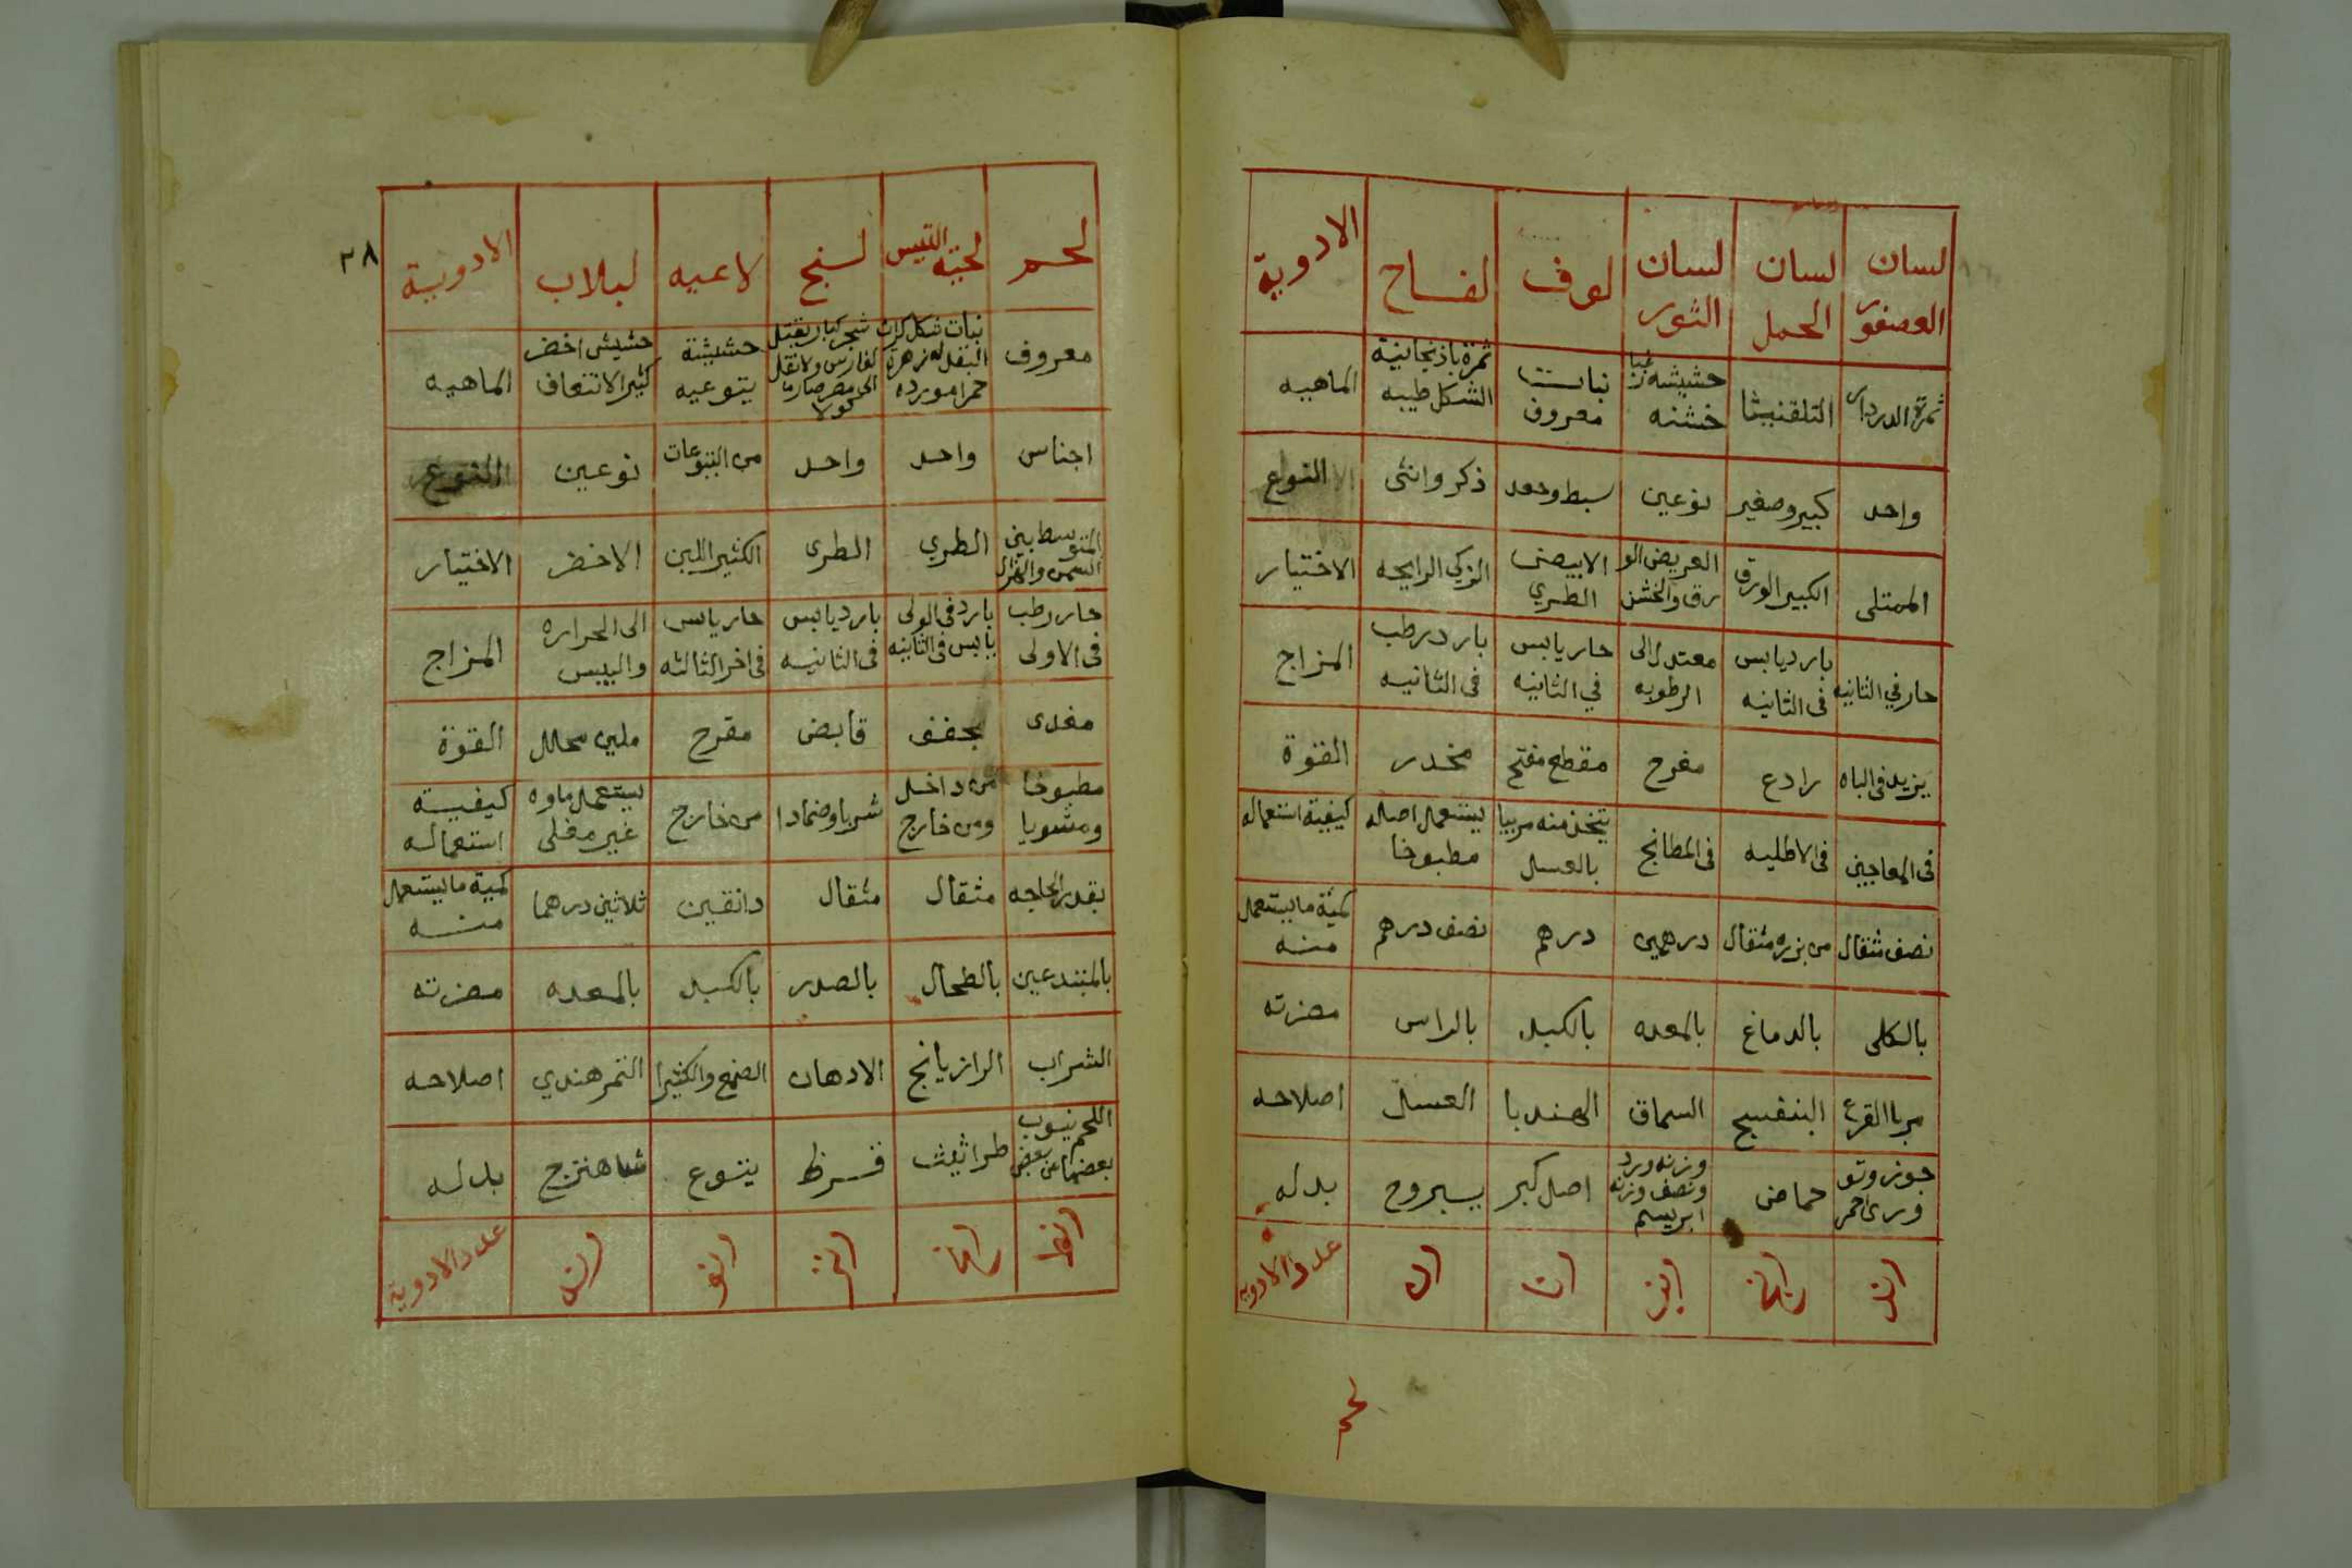 لسان العصفور | لسان الحمل | لسان الثور | لوف | لفاح | الادوية
ثمرة الدردار | | حشيشه خشنه | نبات معروف | ثمرة باذنجانية الشكل طيبه | الماهيه
واحد | كبير وصغير | نوعين | سبط وجعد | ذكر وانثى | النوع
الممتلى | الكبير الورق | العريض الو رق والخشن | الابيض الطري | الزكي الرايحه | الاختيار
حار في الثانيه | بارد يابس فى الثانيه | معتدل الى الرطوبه | حار يابس في الثانيه | بارد رطب فى الثانيه | المزاج
يزيد فى الباه | رادع | مفرح | مقطع مفتح | مخدر | القوة
فى المعاجين | فى الاطليه | فى المطابخ | يتخذ منه مربيا بالعسل | يستعمل اصله مطبوخا | كيفية استعماله
نصف مثقال | من بزره مثقال | درهمين | درهم | نصف درهم | كمية ما يستعمل منه
بالكلى | بالدماغ | بالمعده | بالكبد | بالراس | مضرته
مربا القرع | البنفسج | السماق | الهندبا | العسل | اصلاحه
جوز وتو دري احمر | حماض | وزنه ورد ونصف وزنه ابريسم | اصل كبر | يبروح | بدله
عدد الادويه
لحم
٣٨
لحم | لحية التيس | لسنج | لاعيه | لبلاب | الادوية
معروف | نبات شكل كراث البقل له زهرة حمرا مورده | شجر كبار يقتل | حشيشة يتوعيه | حشيش اخضر كثير الانتفاف | الماهيه
اجناس | واحد | واحد | من اليتوعات | نوعين | النوع
المتوسط بين السمن والهزال | الطري | الطرى | الكثير اللبن | الاخضر | الاختيار
حار رطب فى الاولى | بارد فى الولى يابس فى الثانيه | بارد يابس فى الثانيه | حار يابس فى اخر الثالثه | الى الحراره واليبس | المزاج
مغدى | مجفف | قابض | مقرح | ملين محلل | القوة
مطبوخا ومشويا | من داخل ومن خارج | شربا وضمادا | من خارج | يستعمل ماوه غير مغلى | كيفية استعماله
بقدر الحاجه | مثقال | مثقال | دانقين | ثلاثين درهما | كمية ما يستعمل منه
| بالطحال | بالصدر | بالكبد | بالمعده | مضرته
الشراب | الرازيانج | الادهان | الصمغ والكثيرا | التمر هندي | اصلاحه
اللحم ينوب بعضها عن بعض | طراثيث | قرظ | يتوع | شاهترج | بدله
عدد الادوية